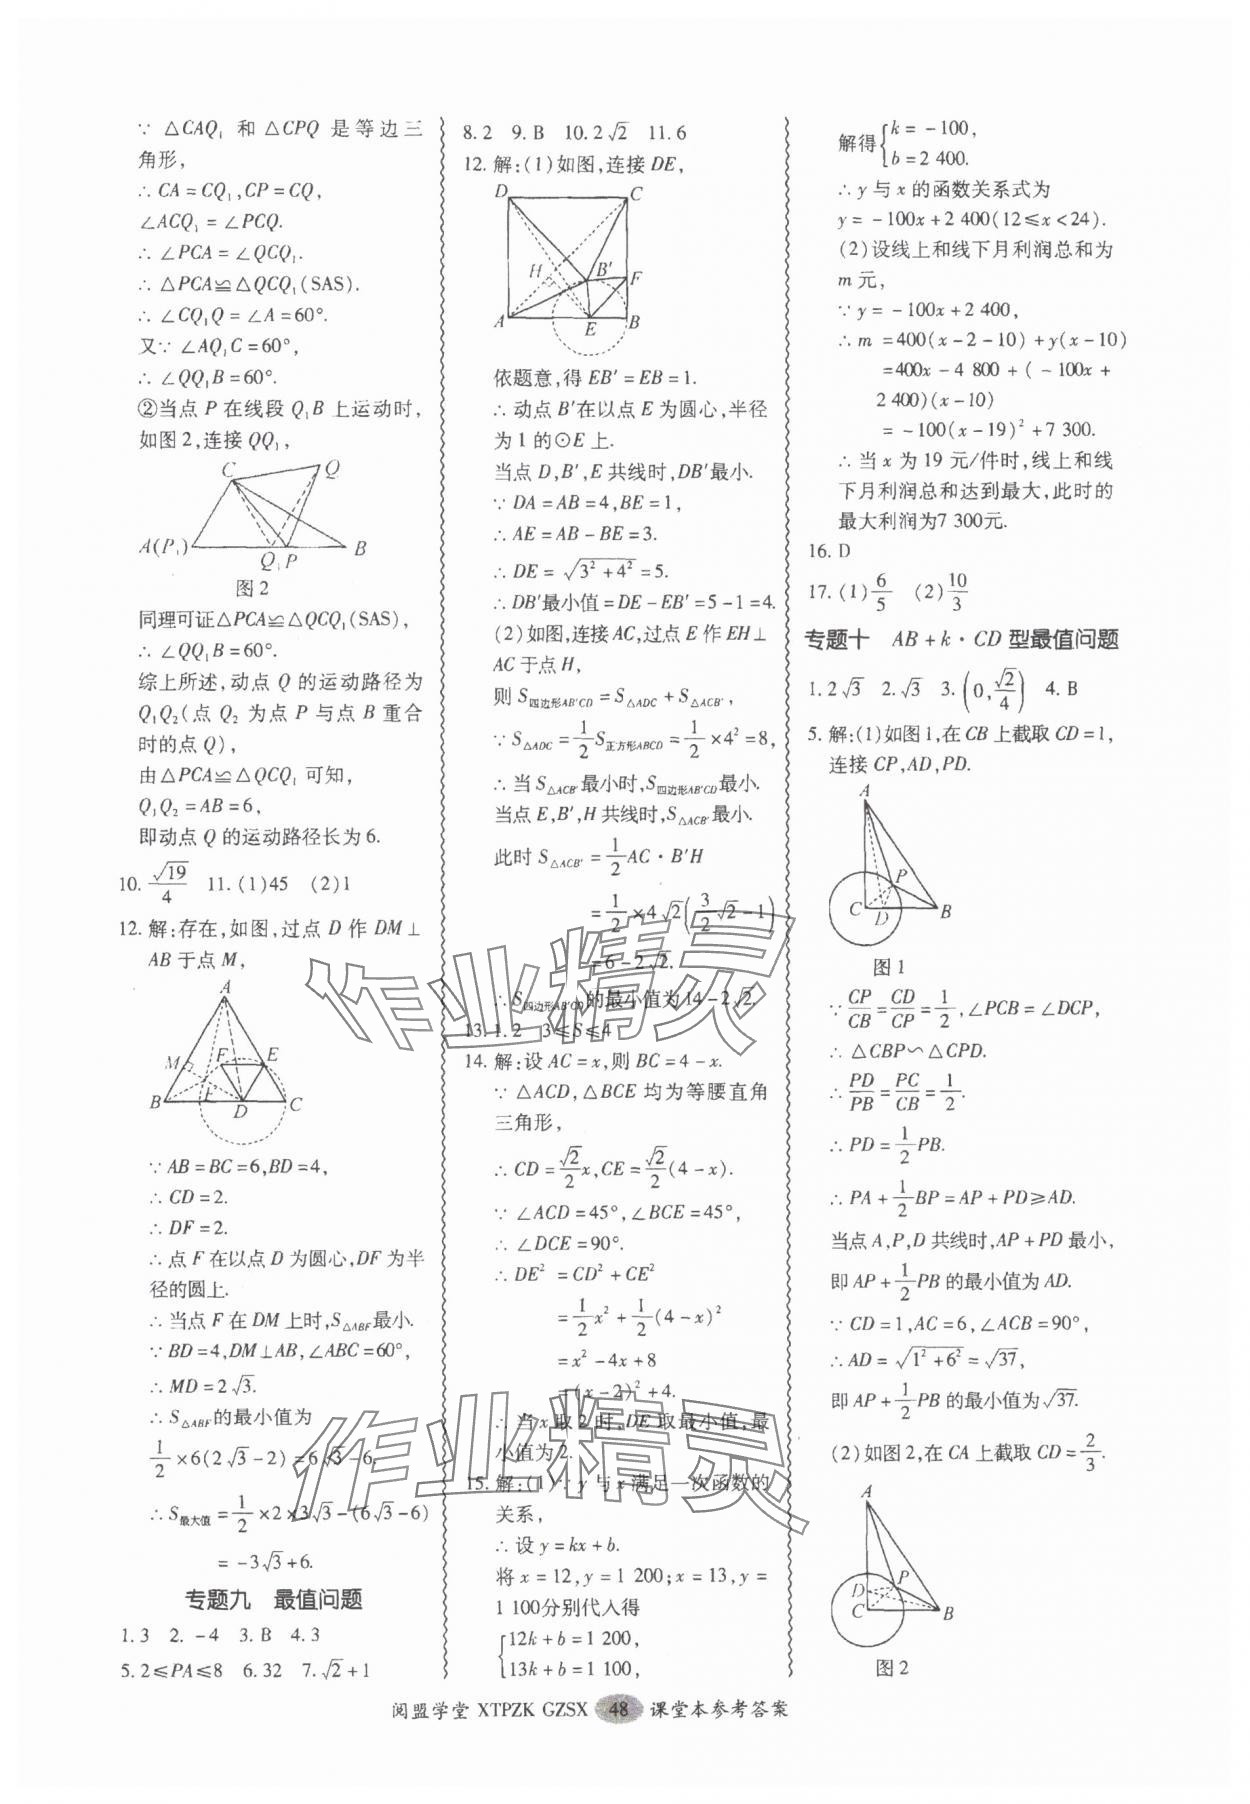 ∵ △CAQ₁ 和 △CPQ 是等边三
角形,
∴ CA = CQ₁, CP = CQ,
∠ACQ₁ = ∠PCQ.
∴ ∠PCA = ∠QCQ₁.
∴ △PCA≌△QCQ₁(SAS).
∴ ∠CQ₁Q = ∠A = 60°.
又∵ ∠AQ₁C = 60°,
∴ ∠QQ₁B = 60°.
②当点 P 在线段 Q₁B 上运动时,
如图 2,连接 QQ₁,
C Q A(P₁) Q₁ P B
图 2
同理可证△PCA≌△QCQ₁(SAS),
∴ ∠QQ₁B = 60°.
综上所述,动点 Q 的运动路径为
Q₁Q₂(点 Q₂ 为点 P 与点 B 重合
时的点 Q),
由△PCA≌△QCQ₁ 可知,
Q₁Q₂ = AB = 6,
即动点 Q 的运动路径长为 6.
10. √19/4 11. (1)45 (2)1
12. 解:存在,如图,过点 D 作 DM⊥
AB 于点 M,
A M F E F B D C
∵ AB = BC = 6, BD = 4,
∴ CD = 2.
∴ DF = 2.
∴ 点 F 在以点 D 为圆心,DF 为半
径的圆上.
∴ 当点 F 在 DM 上时,S△ABF最小.
∵ BD = 4, DM⊥AB, ∠ABC = 60°,
∴ MD = 2√3.
∴ S△ABF的最小值为
1/2 × 6(2√3 - 2) = 6√3 - 6.
∴ S最大值 = 1/2 × 2 × 3√3 - (6√3 - 6)
= -3√3 + 6.
专题九 最值问题
1. 3 2. -4 3. B 4. 3
5. 2≤PA≤8 6. 32 7. √2 + 1
8. 2 9. B 10. 2√2 11. 6
12. 解:(1)如图,连接 DE,
D C H B′ F A E B
依题意,得 EB′ = EB = 1.
∴ 动点 B′在以点 E 为圆心,半径
为 1 的⊙E 上.
当点 D,B′,E 共线时,DB′最小.
∵ DA = AB = 4, BE = 1,
∴ AE = AB - BE = 3.
∴ DE = √(3² + 4²) = 5.
∴ DB′最小值 = DE - EB′ = 5 - 1 = 4.
(2)如图,连接 AC,过点 E 作 EH⊥
AC 于点 H,
则 S四边形AB′CD = S△ADC + S△ACB′,
∵ S△ADC = 1/2 S正方形ABCD = 1/2 × 4² = 8,
∴ 当 S△ACB′最小时,S四边形AB′CD最小.
当点 E,B′,H 共线时,S△ACB′最小.
此时 S△ACB′ = 1/2 AC · B′H
= 1/2 × 4√2(3/2 √2 - 1)
= 6 - 2√2.
∴ S四边形AB′CD的最小值为 14 - 2√2.
13. 1. 2 3≤S≤4
14. 解:设 AC = x,则 BC = 4 - x.
∵ △ACD,△BCE 均为等腰直角
三角形,
∴ CD = √2/2 x, CE = √2/2 (4 - x).
∵ ∠ACD = 45°, ∠BCE = 45°,
∴ ∠DCE = 90°.
∴ DE² = CD² + CE²
= 1/2 x² + 1/2 (4 - x)²
= x² - 4x + 8
= (x - 2)² + 4.
∴ 当 x 取 2 时,DE 取最小值,最
小值为 2.
15. 解:(1)∵ y 与 x 满足一次函数的
关系,
∴ 设 y = kx + b.
将 x = 12, y = 1 200; x = 13, y =
1 100分别代入得
{12k + b = 1 200,
13k + b = 1 100,
解得{k = -100,
b = 2 400.
∴ y 与 x 的函数关系式为
y = -100x + 2 400(12≤x<24).
(2)设线上和线下月利润总和为
m 元,
∵ y = -100x + 2 400,
∴ m = 400(x - 2 - 10) + y(x - 10)
= 400x - 4 800 + (-100x +
2 400)(x - 10)
= -100(x - 19)² + 7 300.
∴ 当 x 为 19 元/件时,线上和线
下月利润总和达到最大,此时的
最大利润为7 300元.
16. D
17. (1) 6/5 (2) 10/3
专题十 AB + k · CD 型最值问题
1. 2√3 2. √3 3. (0, √2/4) 4. B
5. 解:(1)如图 1,在 CB 上截取 CD = 1,
连接 CP,AD,PD.
A P C D B
图 1
∵ CP/CB = CD/CP = 1/2, ∠PCB = ∠DCP,
∴ △CBP∽△CPD.
∴ PD/PB = PC/CB = 1/2.
∴ PD = 1/2 PB.
∴ PA + 1/2 BP = AP + PD≥AD.
当点 A,P,D 共线时,AP + PD 最小,
即 AP + 1/2 PB 的最小值为 AD.
∵ CD = 1, AC = 6, ∠ACB = 90°,
∴ AD = √(1² + 6²) = √37,
即 AP + 1/2 PB 的最小值为 √37.
(2)如图 2,在 CA 上截取 CD = 2/3.
A D P C B
图 2
阅盟学堂 XTPZK GZSX 48 课堂本参考答案
作业精灵
作业精灵